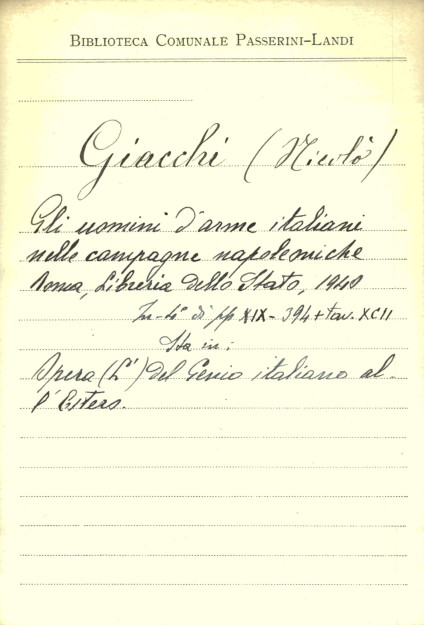 BIBLIOTECA COMUNALE PASSERINI-LANDI
Giacchi (Nicolò)
Gli uomini d'arme italiani
nelle campagne napoleoniche
Roma, Libreria dello Stato, 1940
In-4° di pp XIX-394+tav. XCII
Sta in:
Opera (L') del Genio italiano al-
l'Estero.